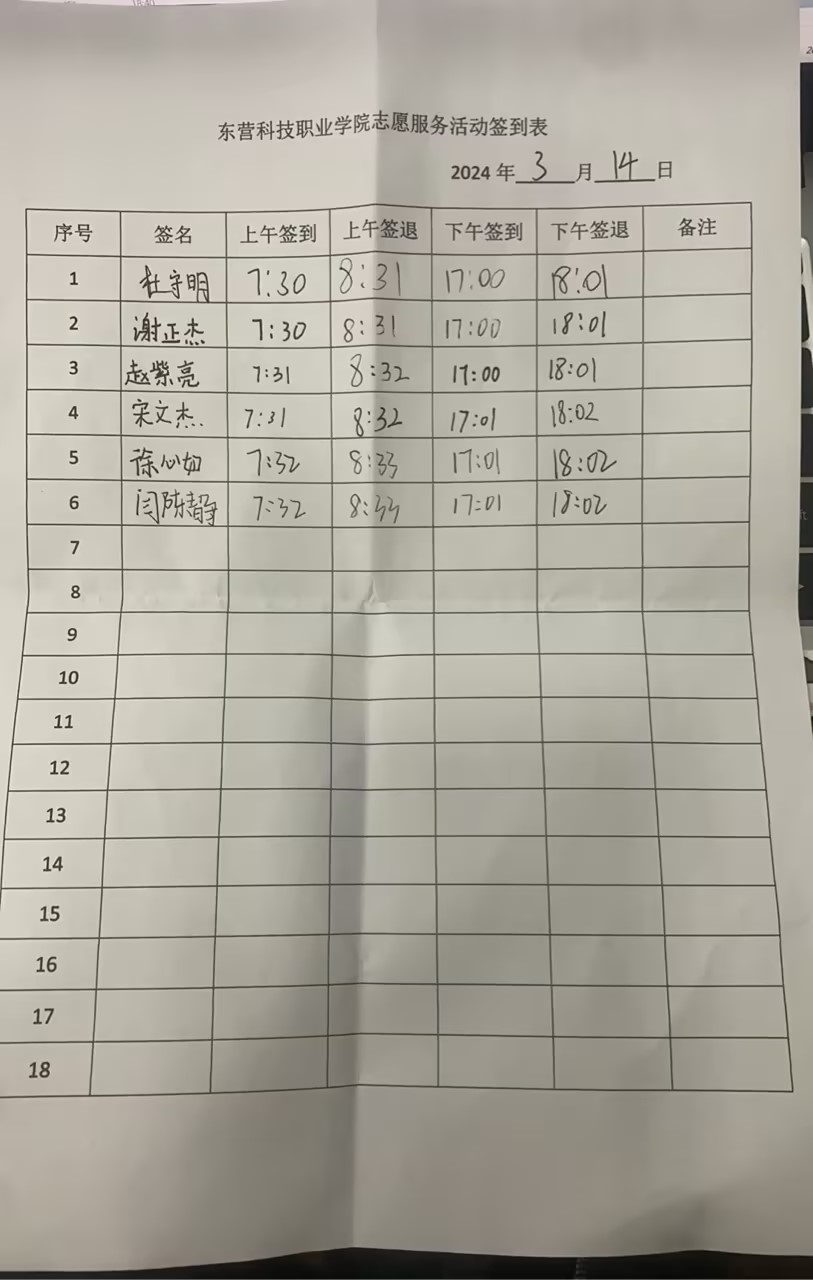 东营科技职业学院志愿服务活动签到表
2024 年 3 月 14 日
序号 签名 上午签到 上午签退 下午签到 下午签退 备注
1 杜守明 7:30 8:31 17:00 18:01
2 谢正杰 7:30 8:31 17:00 18:01
3 赵紫亮 7:31 8:32 17:00 18:01
4 宋文杰 7:31 8:32 17:01 18:02
5 徐心如 7:32 8:33 17:01 18:02
6 闫陈静 7:32 8:33 17:01 18:02
7
8
9
10
11
12
13
14
15
16
17
18